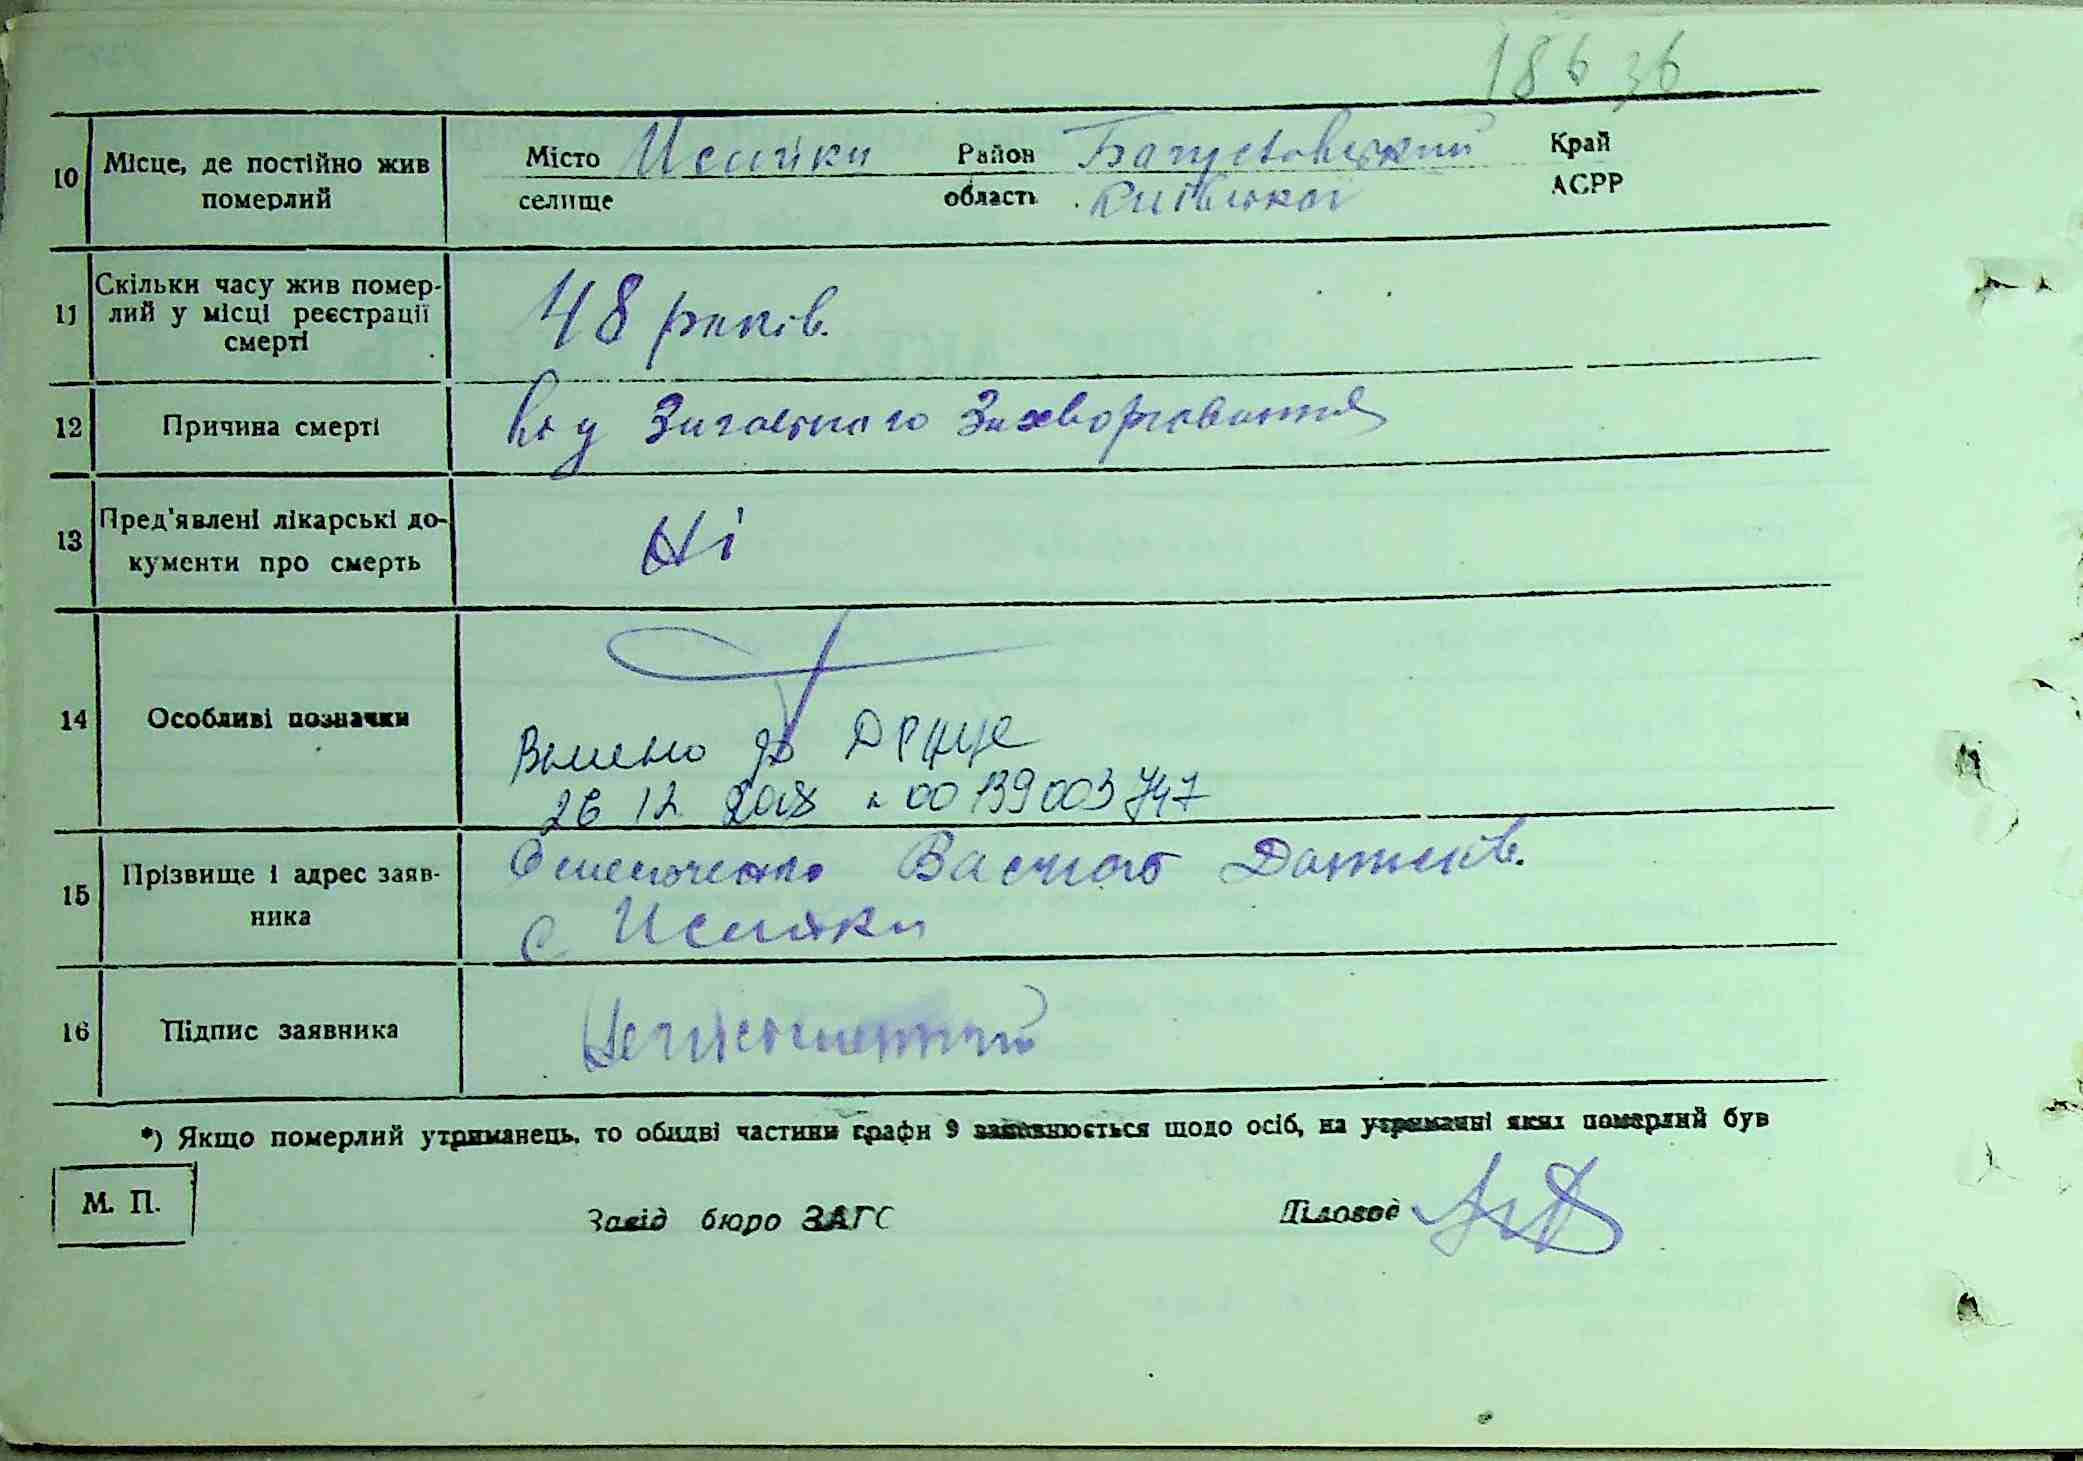 186 36
10 Місце, де постійно жив померлий
Місто Исайки Район Богуславський Край
селище область Київської АСРР
11 Скільки часу жив помер-
лий у місці реєстрації
смерті
48 років.
12 Причина смерті
Від Загального Захворювання
13 Пред'явлені лікарські до-
кументи про смерть
Ні
14 Особливі позначки
Внесено до ДРАЦС
26 12 2008 00139003747
15 Прізвище і адрес заяв-
ника
с Исайки
16 Підпис заявника
Неписьменний
*) Якщо померлий утриманець, то обидві частини графи 9 заповнюється щодо осіб, на утриманні яких померлий був
М. П.
Завід бюро ЗАГС Діловод